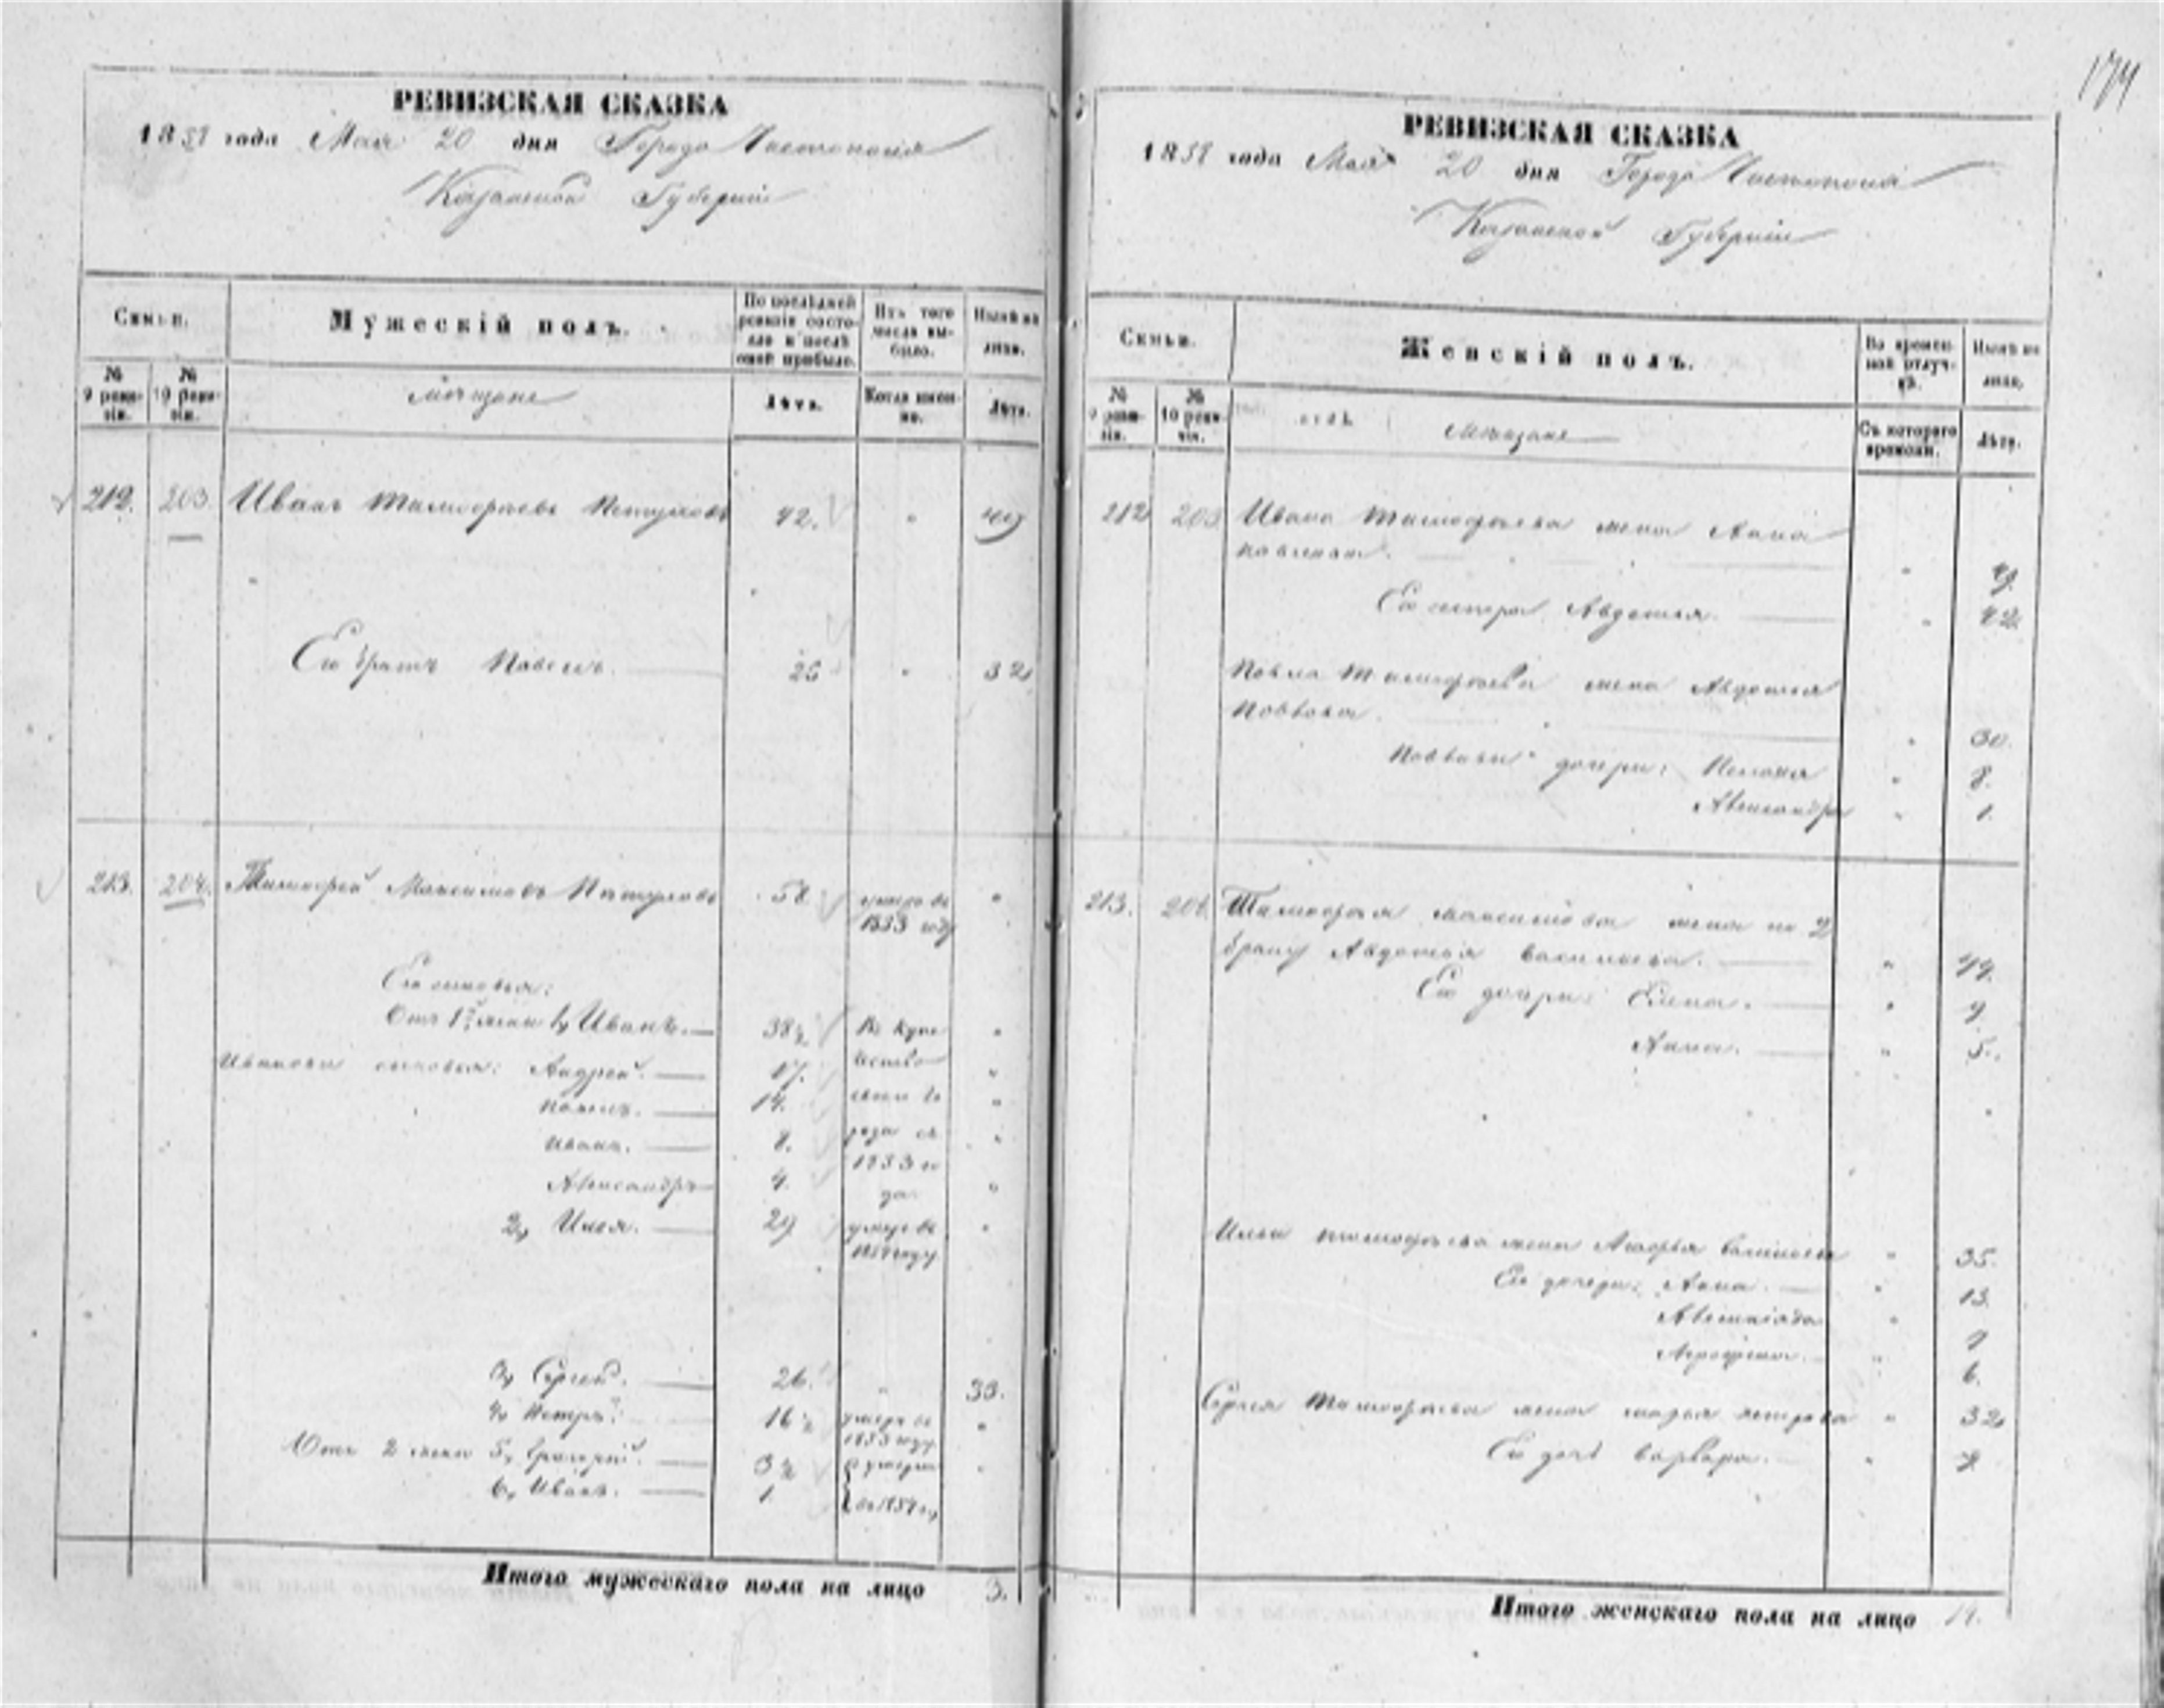 174
РЕВИЗСКАЯ СКАЗКА
1858 года Мая 20 дня Города Чистополя
Казанской Губернии
Семьи.
Мужескій полъ.
По послѣдней ревизіи состояло и послѣ оной прибыло.
Изъ того числа выбыло.
Нынѣ на лицо.
№ 9 ревизіи.
№ 10 ревизіи.
мѣщане
Лѣта.
Когда именно.
Лѣта.
212. 203. Иванъ Тимофѣевъ 42. " 49
Его братъ Павелъ. 25 " 32
213. 204. Тимофей Максимовъ 58 умеръ въ "
1853 году
Его сыновья:
Отъ 1й жены 1, Иванъ. 38½ Въ купе "
Ивановы сыновья: Андрей. 17. чество "
14. "
Иванъ. 8. года съ "
1853 го
Александръ 4. да "
2, Илья. 29 умеръ въ "
году
3, Сергей. 26. " 33.
4, Петръ. 16½ умеръ въ "
1853 году
Отъ 2 жены 5, Григорій. 3½ умерли "
6, Иванъ. 1. въ 1854 г
Итого мужескаго пола на лицо 3.
РЕВИЗСКАЯ СКАЗКА
1858 года Мая 20 дня Города Чистополя
Казанской Губернии
Семьи.
Женскій полъ.
Во временной отлучкѣ.
Нынѣ на лицо.
№ 9 ревизіи.
№ 10 ревизіи.
мѣщане
Съ котораго времени.
Лѣта.
212 203 Ивана Тимофѣева жена Анна
" 49.
Его сестра Авдотья. " 42.
Павла Тимофѣева жена Авдотья
" 30.
дочери: " 8.
Александра " 1.
213. 204. Тимофея Максимова жена по 2
браку Авдотья Васильева. " 44.
Его дочери: Елена. " 9
Анна. " 5.
Ильи Тимофѣева жена " 35.
Его дочери: Анна. " 13.
" 9
" 6.
Сергея Тимофѣева жена Петрова " 32
Его дочь Варвара. "
Итого женскаго пола на лицо 14.